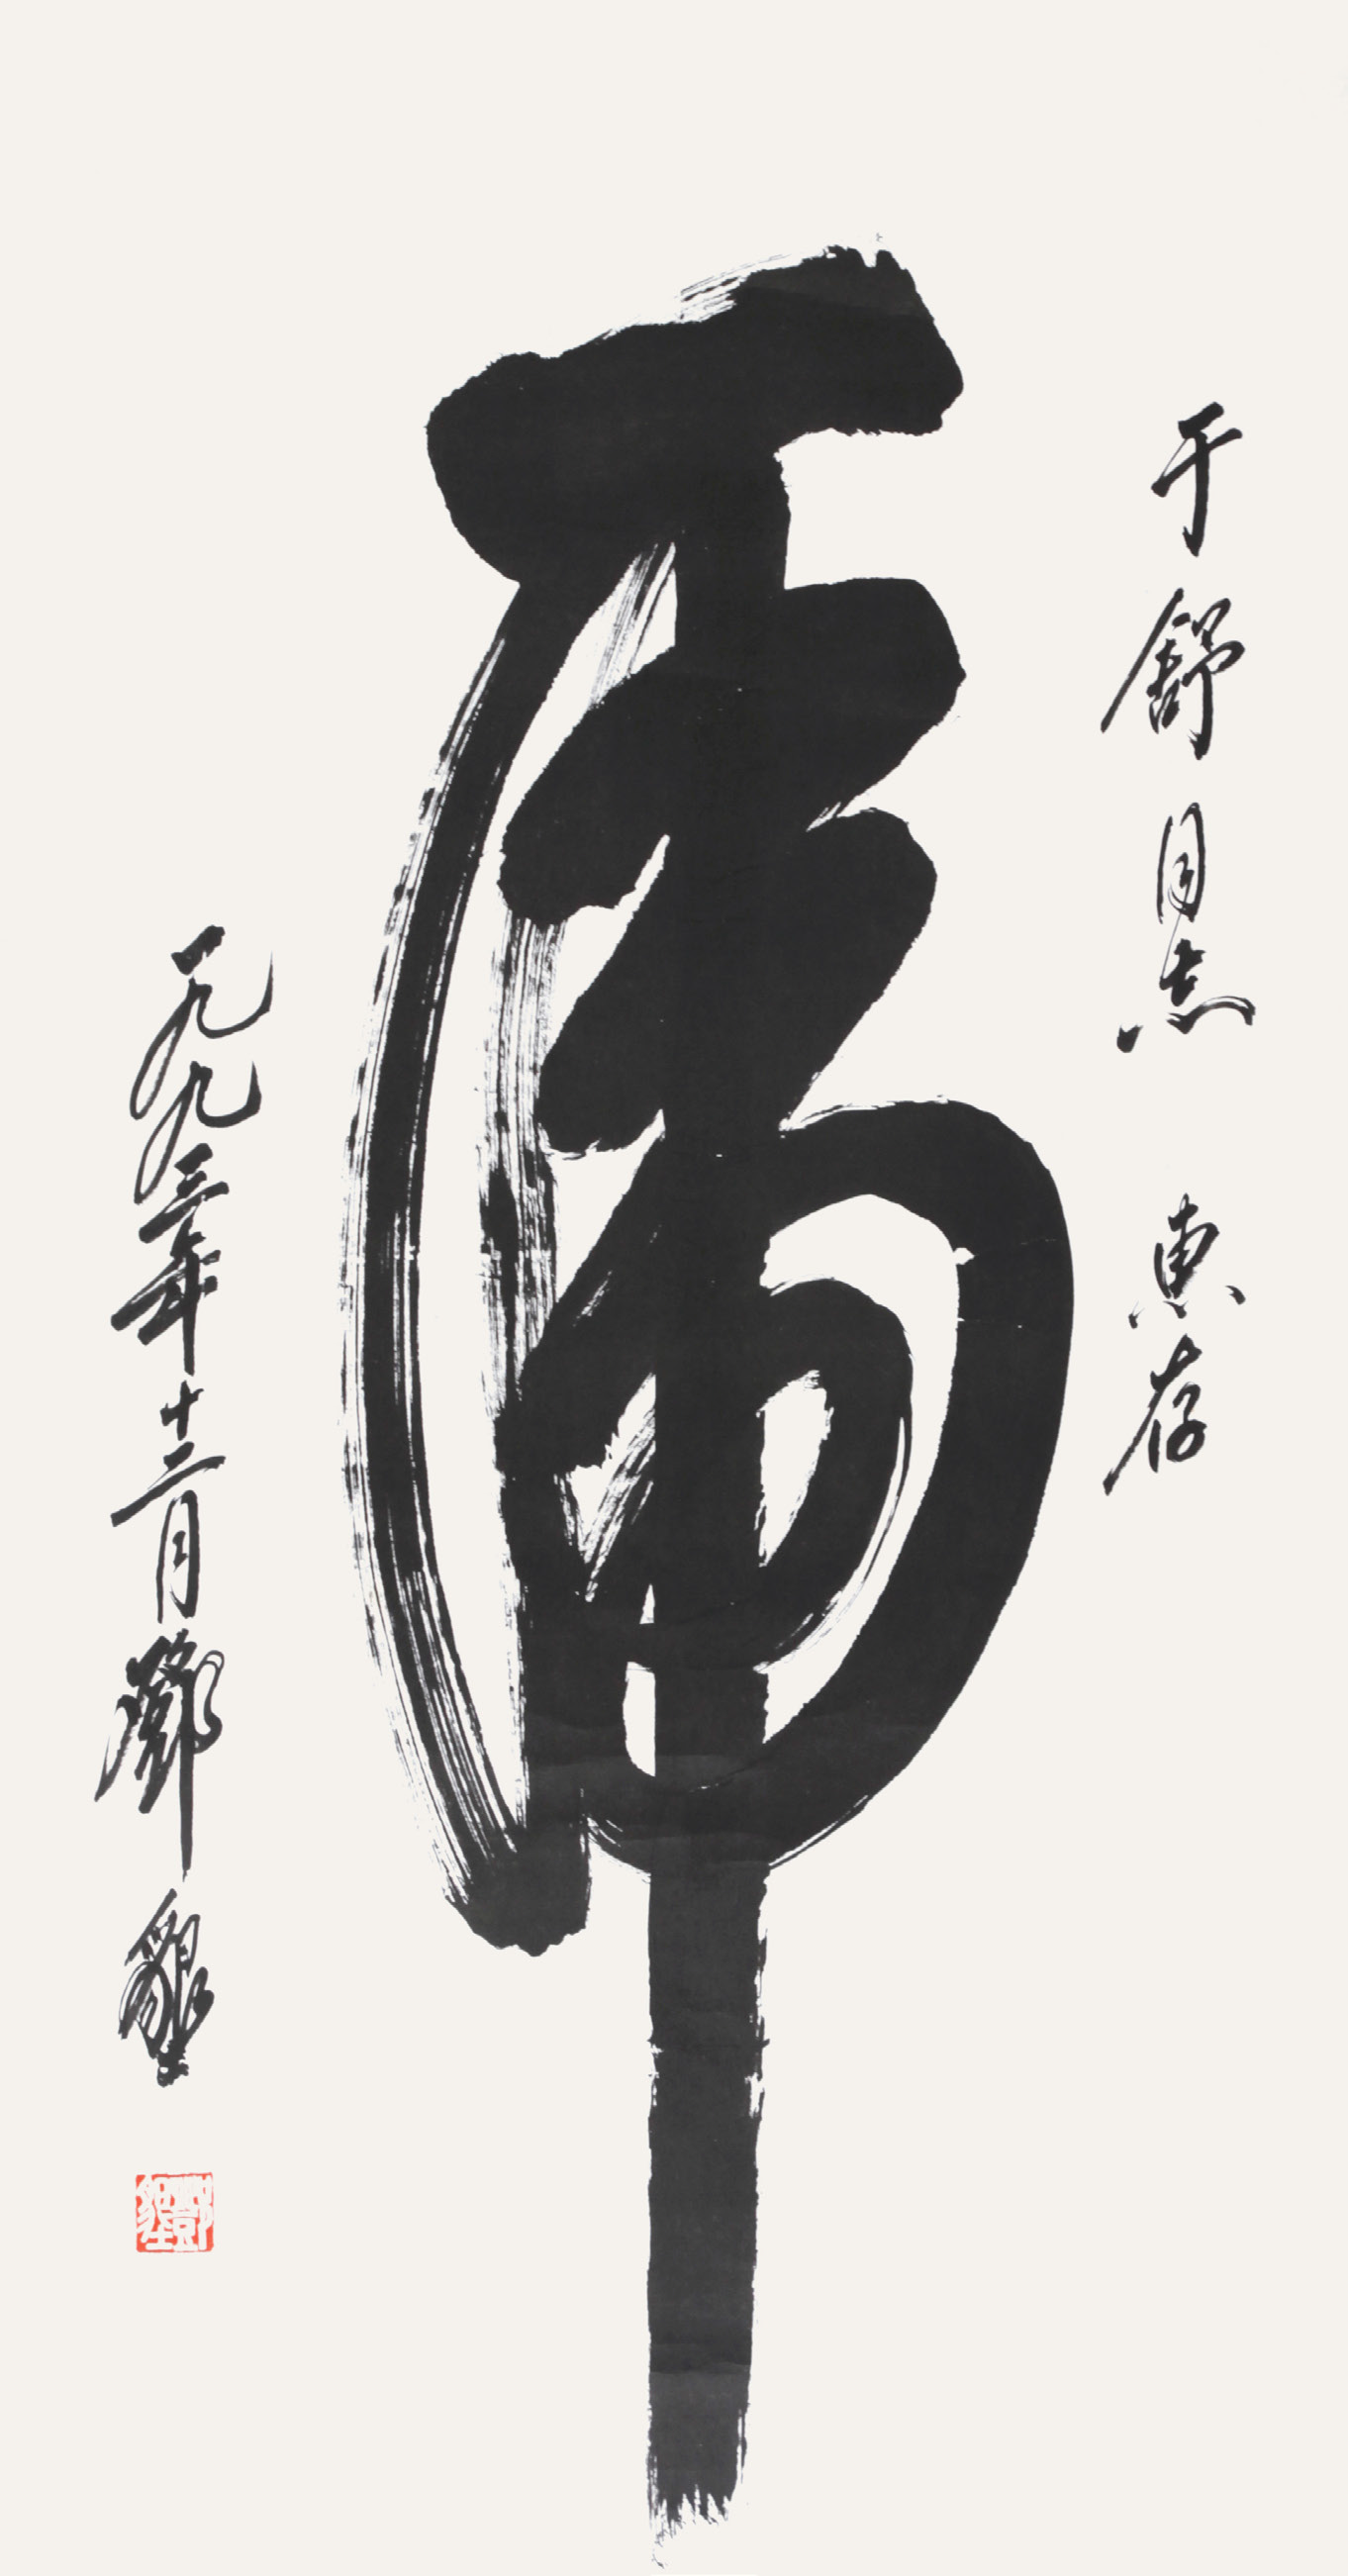 于舒同志 惠存
虎
一九九三年十二月鄧墾
鄧墾